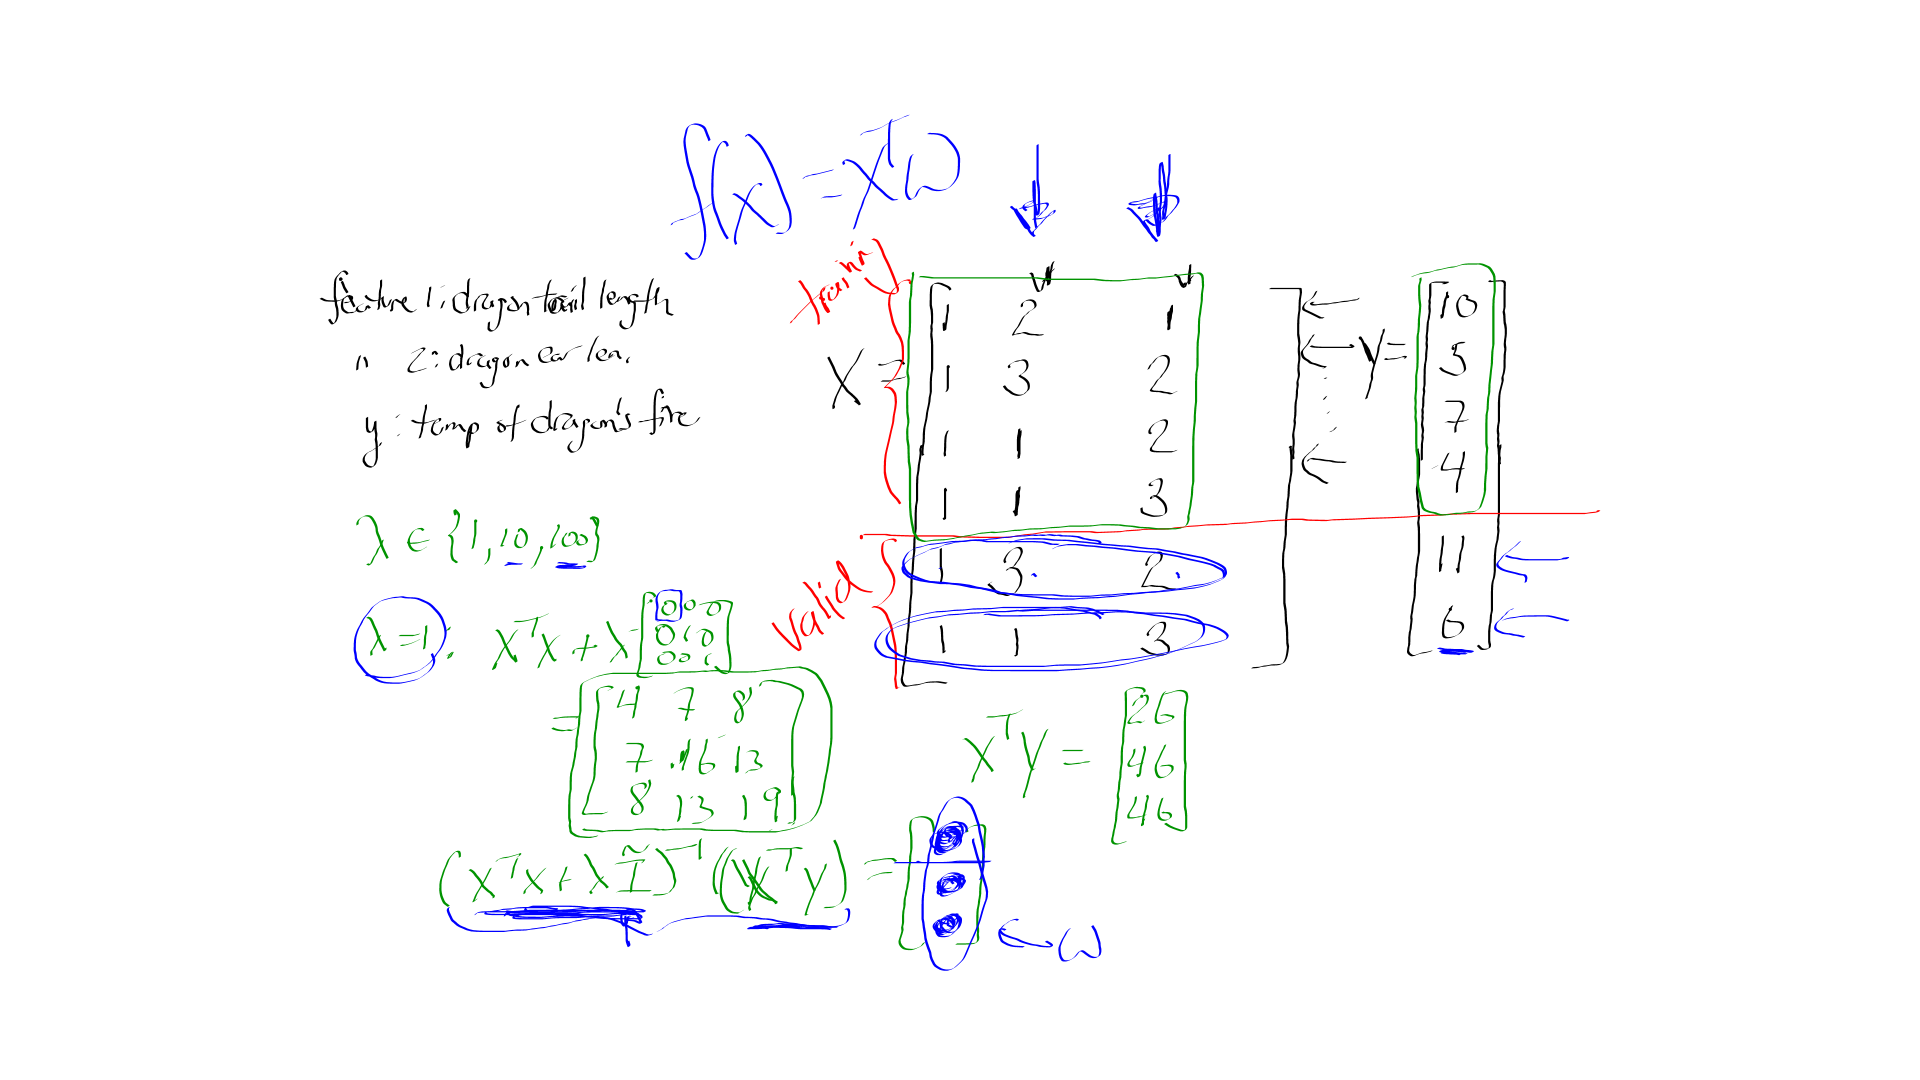 f(x) = xᵀω
feature 1: dragon tail length
" 2: dragon ear len.
y: temp of dragon's fire
train
valid
X = [1 2 1
1 3 2
1 1 2
1 1 3
1 3 2
1 1 3]
y = [10
5
7
4
11
6]
λ ∈ {1, 10, 100}
λ = 1: XᵀX + λ [0 0 0
0 1 0
0 0 1]
= [4 7 8
7 16 13
8 13 19]
XᵀY = [26
46
46]
(XᵀX + λĨ)⁻¹ (Xᵀy) = [ ] ← ω